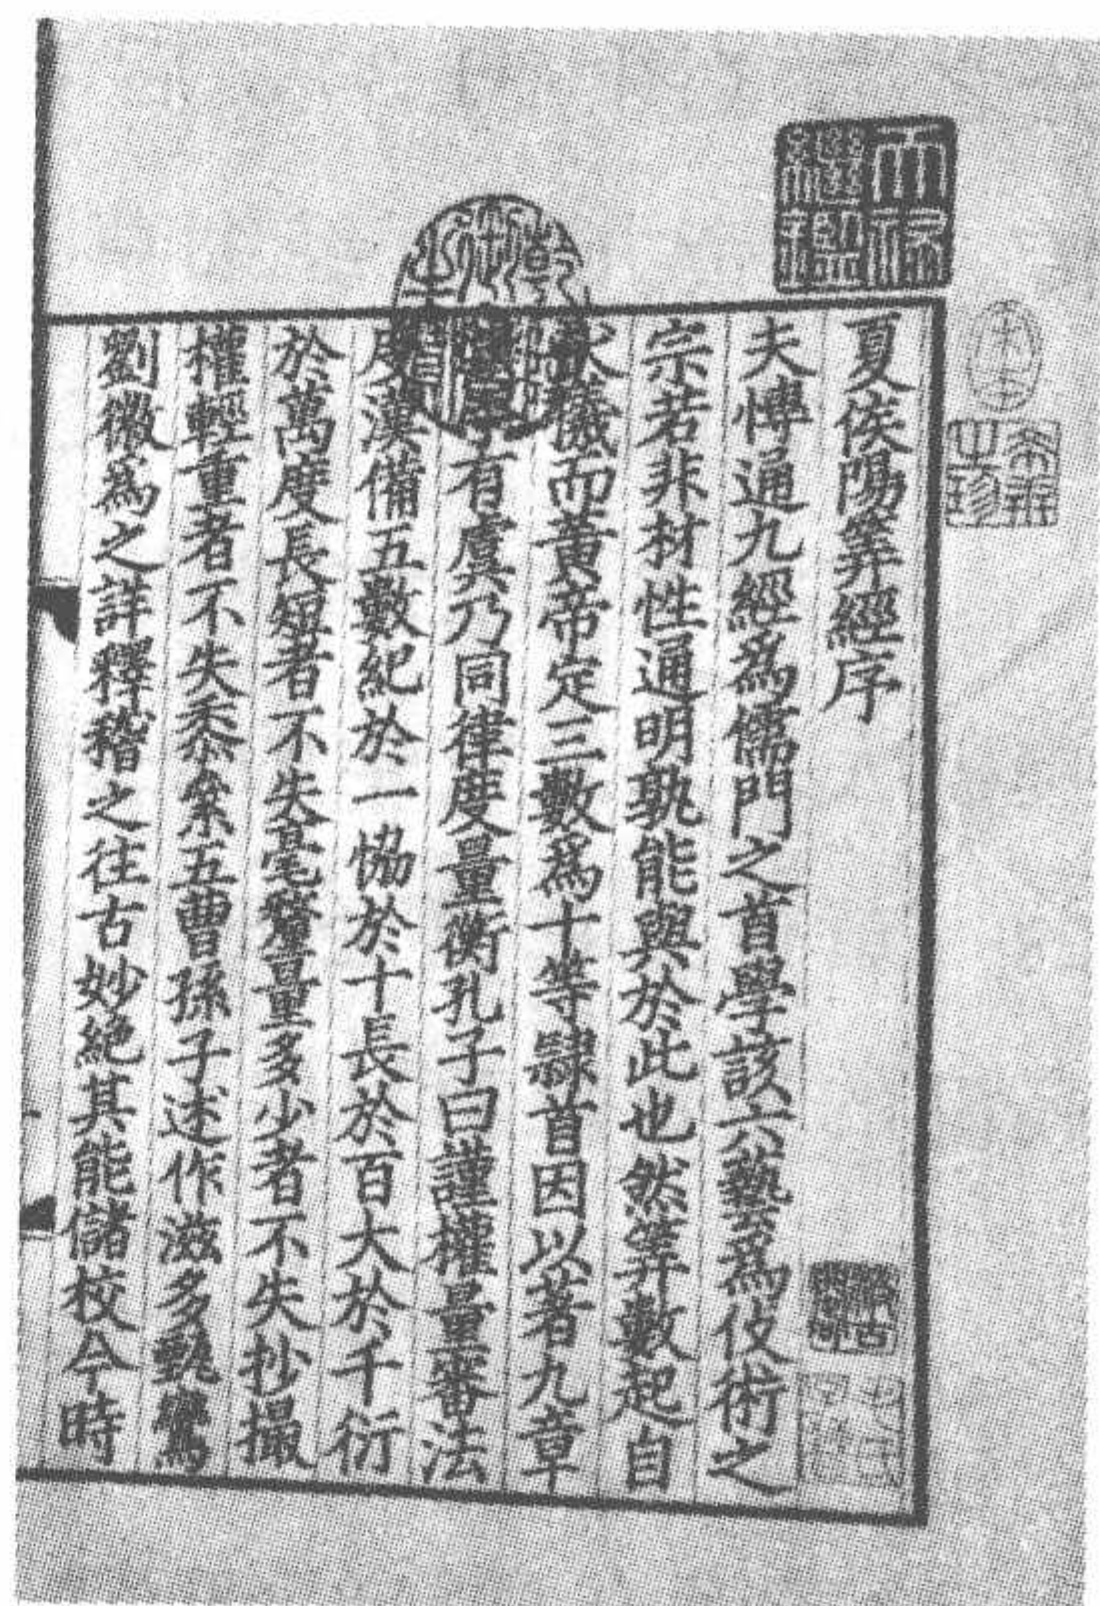 夏侯陽筭經序
夫博通九經為儒門之首學該六藝為伎術之
宗若非材性通明孰能與於此也然筭數起自
伏羲而黃帝定三數為十等隸首因以著九章
有虞乃同律度量衡孔子曰謹權量審法
度漢備五數紀於一協於十長於百大於千衍
於萬度長短者不失毫釐量多少者不失抄撮
權輕重者不失黍絫五曹孫子述作滋多甄鸞
劉徽為之詳釋稽之往古妙絕其能儲校今時
天祿繼鑑
乾隆御覽之寶